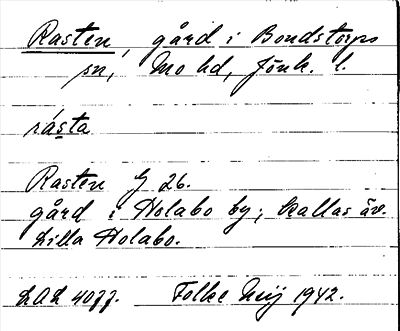 Rasten, gård i Bondstorps
sn, Mo hd, Jönk. l.
rásta
Rasten G 26.
gård i Holabo by; kallas äv.
Lilla Holabo.
LAL 4077. Folke Meij 1942.